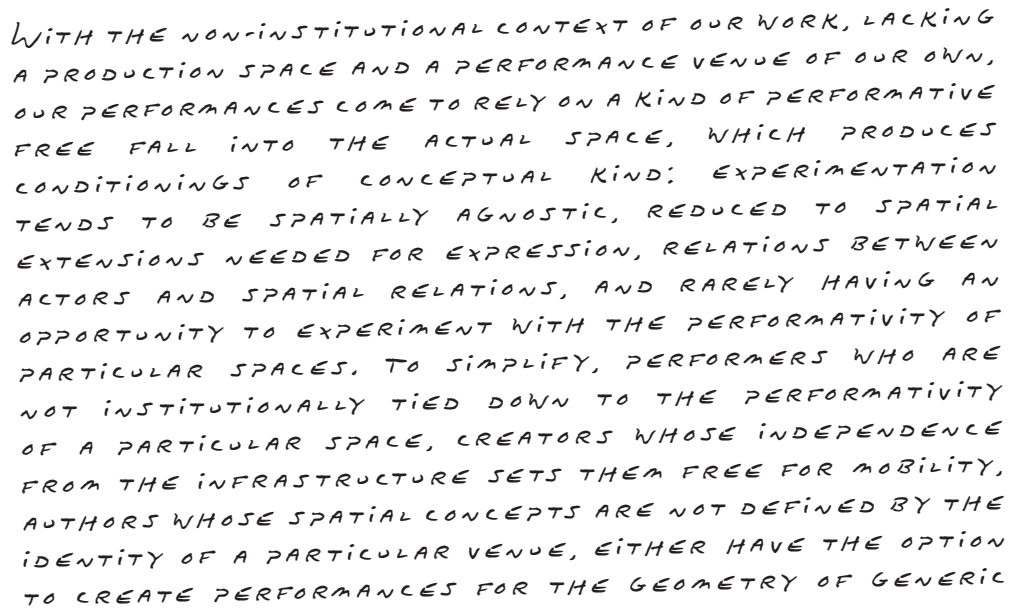 WiTH THE NON-iNSTiTUTiONAL CONTEXT OF OUR WORK, LACKiNG
A PRODUCTiON SPACE AND A PERFORMANCE VENUE OF OUR OWN,
OUR PERFORMANCES COME TO RELY ON A KiND OF PERFORMATiVE
FREE FALL iNTO THE ACTUAL SPACE, WHiCH PRODUCES
CONDiTiONiNGS OF CONCEPTUAL KiND: EXPERiMENTATiON
TENDS TO BE SPATiALLY AGNOSTiC, REDUCED TO SPATiAL
EXTENSiONS NEEDED FOR EXPRESSiON, RELATiONS BETWEEN
ACTORS AND SPATiAL RELATiONS, AND RARELY HAViNG AN
OPPORTUNiTY TO EXPERiMENT WiTH THE PERFORMATiViTY OF
PARTiCULAR SPACES. TO SiMPLiFY, PERFORMERS WHO ARE
NOT iNSTiTUTiONALLY TiED DOWN TO THE PERFORMATiViTY
OF A PARTiCULAR SPACE, CREATORS WHOSE iNDEPENDENCE
FROM THE iNFRASTRUCTURE SETS THEM FREE FOR MOBiLiTY,
AUTHORS WHOSE SPATiAL CONCEPTS ARE NOT DEFiNED BY THE
iDENTiTY OF A PARTiCULAR VENUE, EiTHER HAVE THE OPTiON
TO CREATE PERFORMANCES FOR THE GEOMETRY OF GENERiC